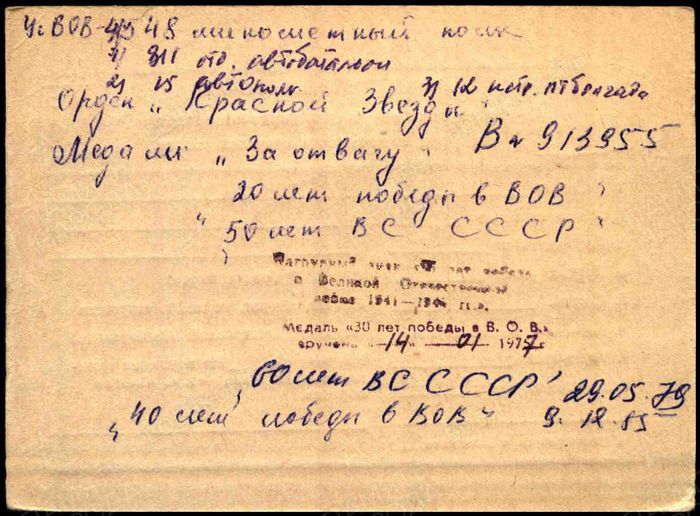 Уч ВОВ - 548 минометный полк
1) 311 отд. автобатальон
2) 15 автополк 3) 12 истр. птбригада
Орден „Красной Звезды"
Медали „За отвагу" В № 913955
„20 лет победы в ВОВ"
„50 лет ВС СССР"
Нагрудный знак лет победы
в Великой Отечественной
войне 1941—19 гг.».
Медаль «30 лет победы в В. О. В.»
вручена «14» 01 1977 г
„60 лет ВС СССР" 29.05.79
„40 лет победы в ВОВ" 9.12.85